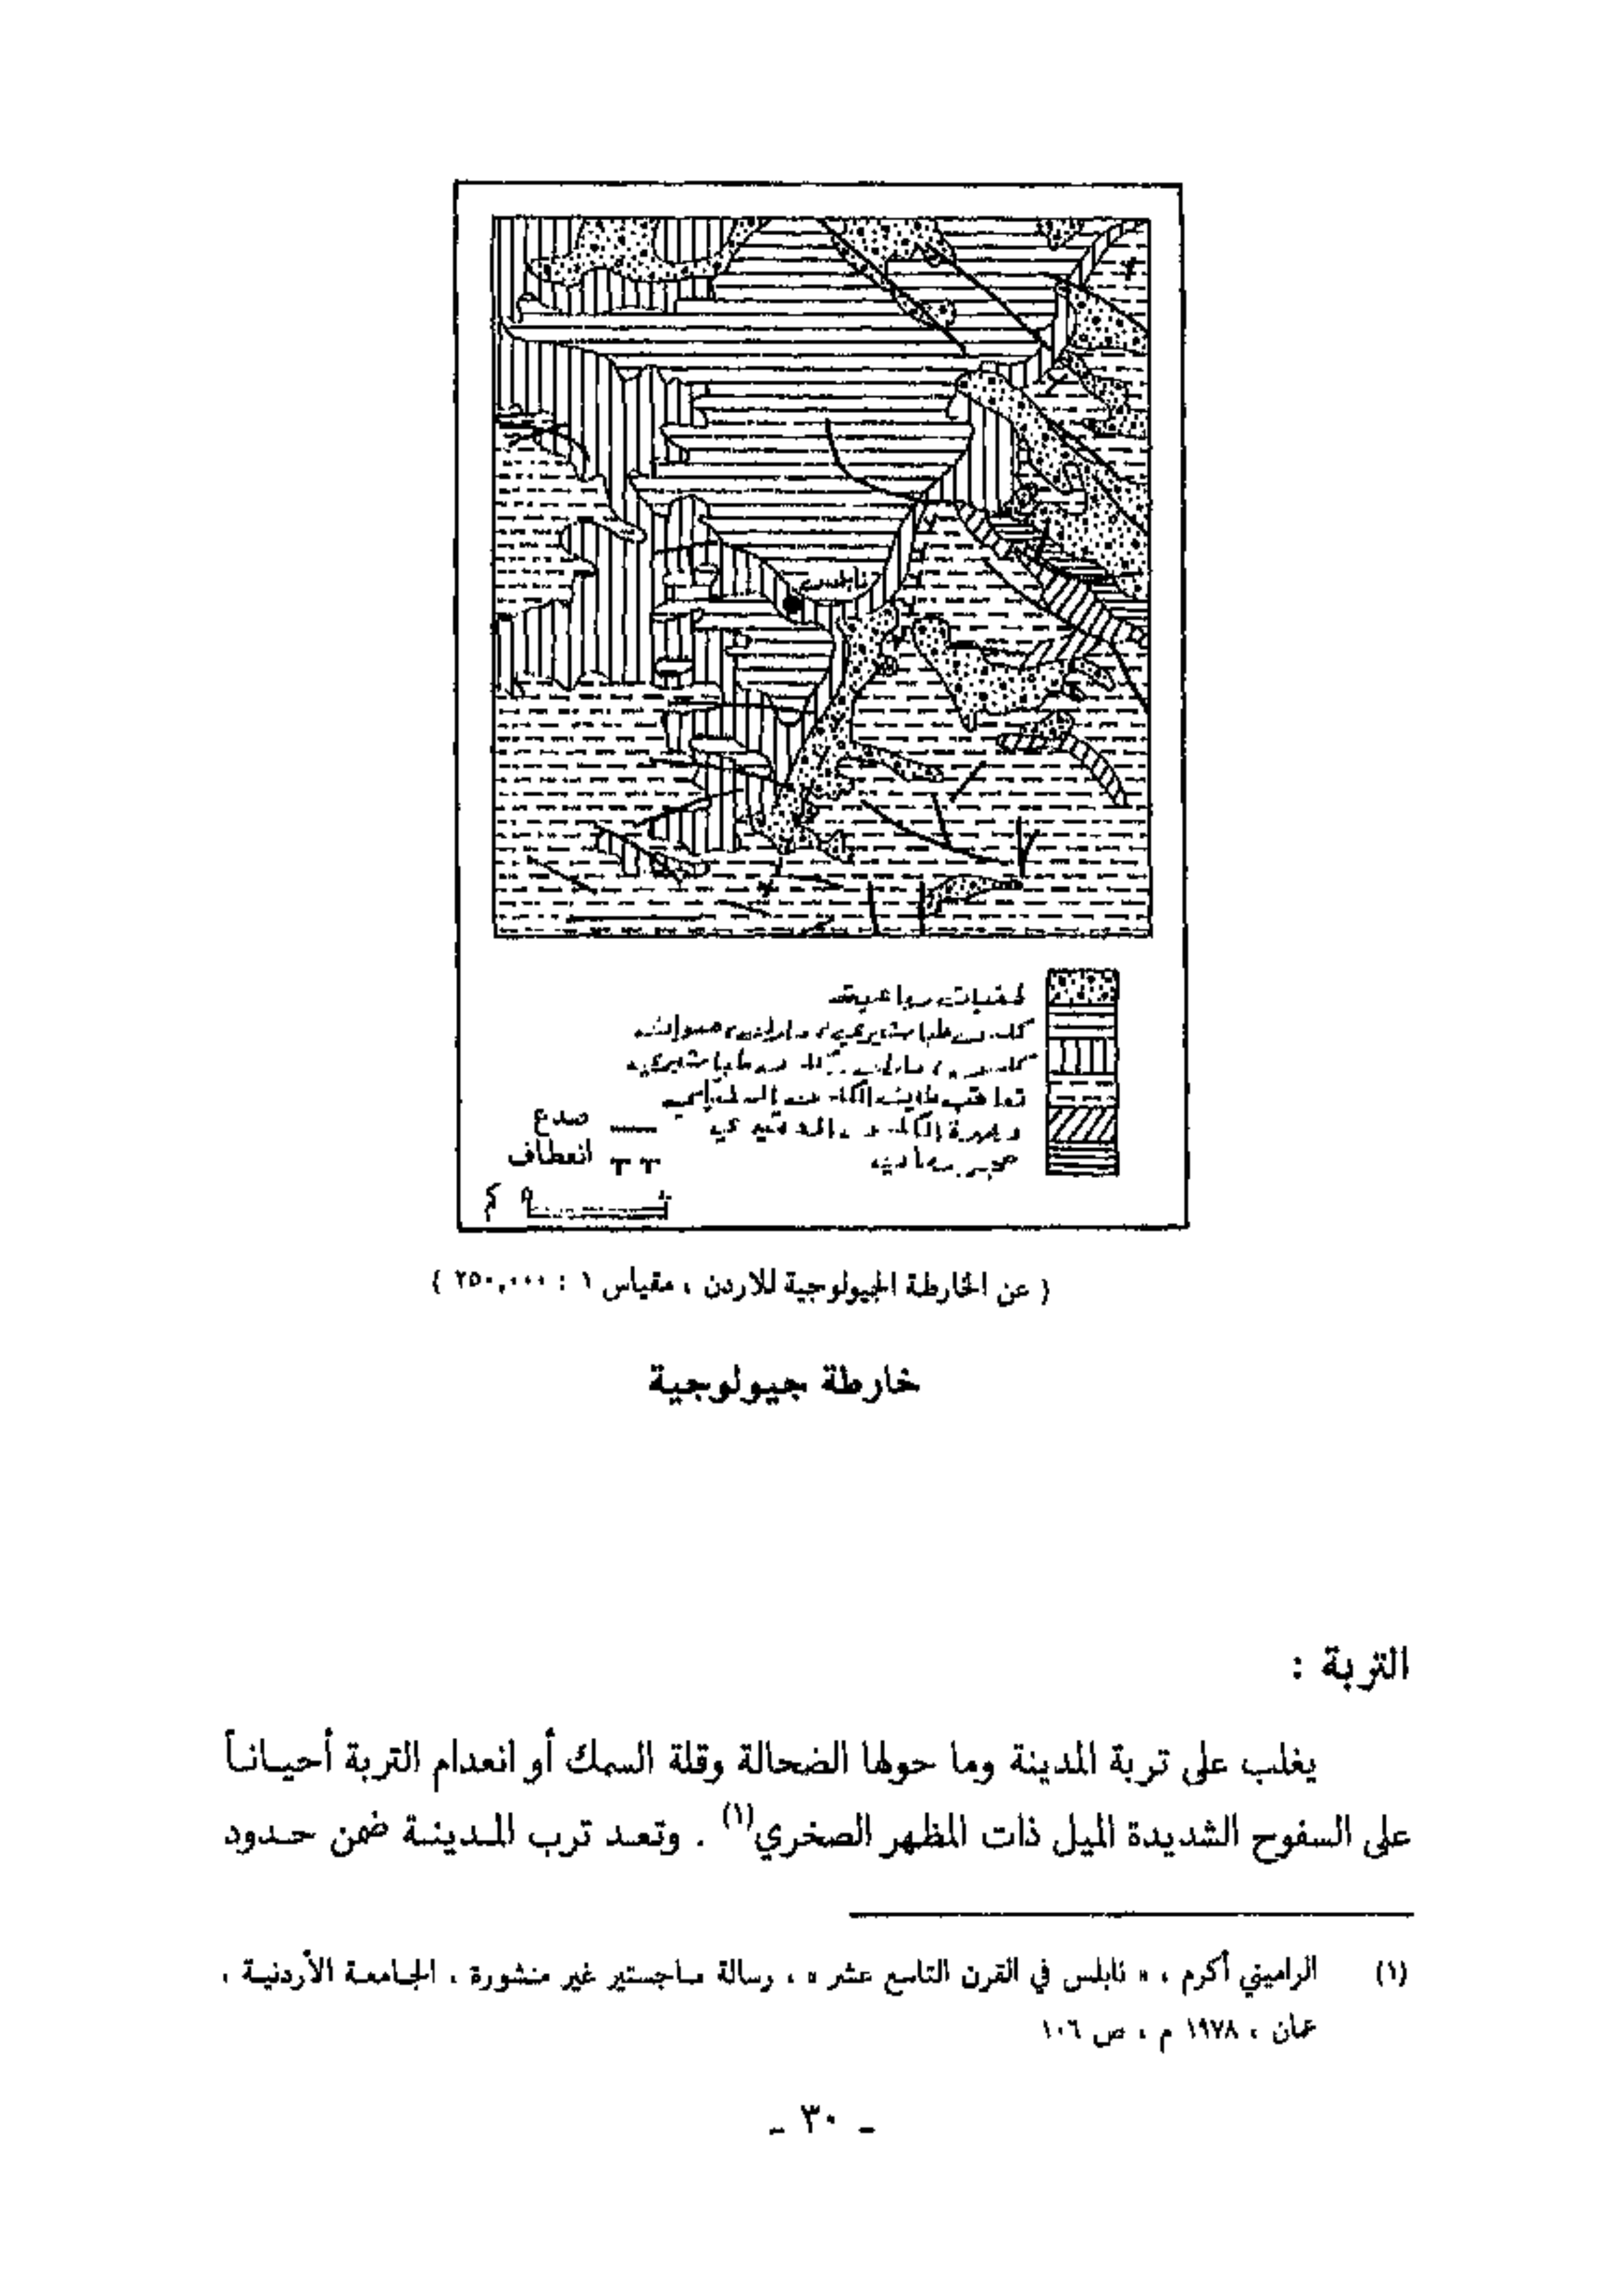 نابلس
صدع
انعطاف
كم
( عن الخارطة الجيولوجية للاردن ، مقياس ١ : ٢٥٠,٠٠٠ )
خارطة جيولوجية
التربة :
يغلب على تربة المدينة وما حولها الضحالة وقلة السمك أو انعدام التربة أحيـانـاً
على السفوح الشديدة الميل ذات المظهر الصخري(١) . وتعـد ترب المـدينـة ضمن حـدود
(١) الراميني أكرم ، « نابلس في القرن التاسع عشر » ، رسالة مـاجستير غير منشورة ، الجـامعـة الأردنيـة ،
عمان ، ١٩٧٨ م ، ص ١٠٦
ـ ٣٠ ـ